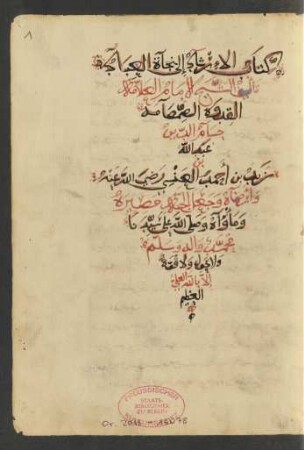 1
كتاب الارشاد إلى نجاة العباد
تأليف الشيخ الامام العلامة
القدوة الصمصامة
حسام الدين
عبدالله
بن
زيد بن أحمد العنسي رضي الله عنه
وارضاه وجعل الجنة
ومأواه وصلى الله على سيدنا
محمد واله وسلم
ولا حول ولا قوة
إلا بالله العلي
العظيم
STAATS-
BIBLIOTHEK
ZU BERLIN
Or. 2015